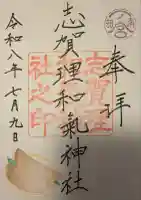 奉拝
志賀理和氣神社
令和八年七月九日
志賀理
和氣神
社之印